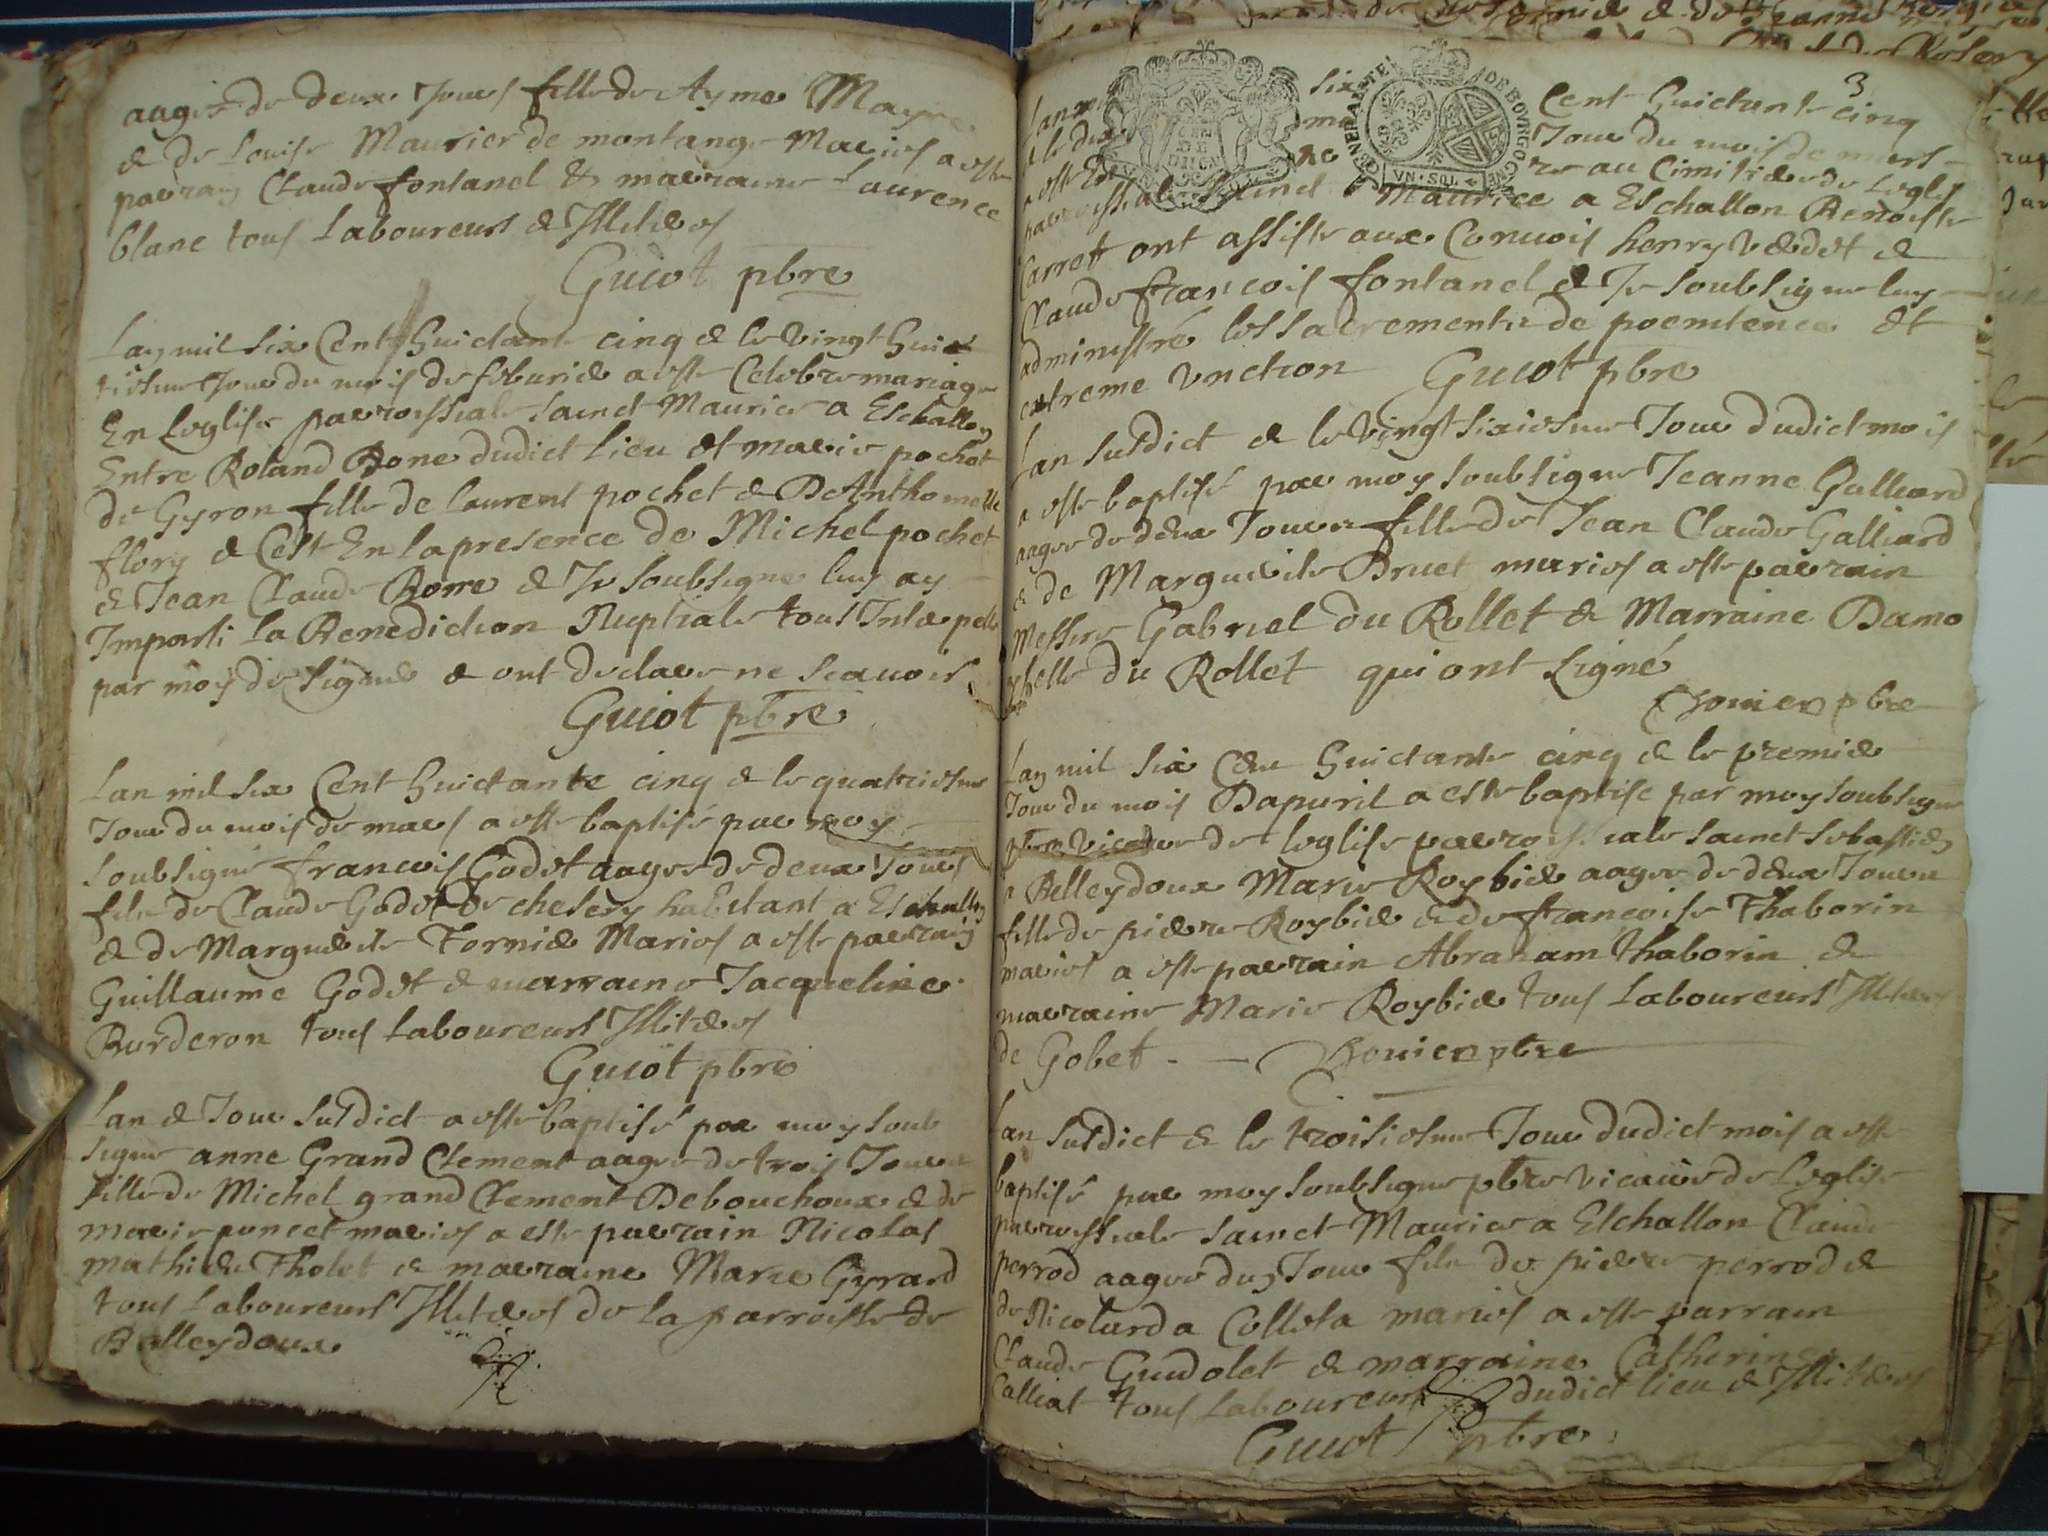 aagée de deux Jours fille de Ayme Mayne
& de Louise Maurier de montange Mariés a esté
parrain Claude fontanel & marraine Laurence
blanc tous Laboureurs & Illiterés
Guiot pbre
Lan mil six Cent huictante cinq & le vingt huict
tiesme Jour du mois de feburier a esté Celebré mariage
En Leglise parroissiale sainct Maurice a Eschallon
Entre Roland Bone dudict Lieu et marie pochet
de Gyron fille de laurent pochet & D Anthomette
flory & Cest En la presence de Michel pochet
& Jean Claude Bone & Je soubsigné luy ay
Imparti La Benediction Nuptiale tous Interpellé
par moy de signer & ont declaré ne scauoir
Guiot pbre
Lan mil six Cent huictante cinq & le quatriesme
Jour du mois de mars a esté baptisé par moy
soubsigné francois Godet aagée de deux Jours
fils de Claude Godet De chesery habitant a Eschallon
& de Marguerite Tornier Mariés a esté parrain
Guillaume Godet & marraine Jacqueline
Burderon tous Laboureurs Illiterés
Guiot pbre
Lan & Jour susdict a esté baptisé par moy soub
signé anne Grand Clement aagée de trois Jours
fille de Michel grand Clement De bouchoux & de
marie poncet mariés a esté parrain Nicolas
mathieu Tholet & marraine Marie Gyrard
tous Laboureurs Illiterés de La parroisse de
Belleydoux
3
GENERALITE DE BOURGOGNE
UN SOL
Lan mil six Cent huictante cinq
& le Jour du mois de mars
a esté En au Cimitiere de Leglise
parroissiale Sainct Maurice a Eschallon Benoiste
Carret ont assisté aux Conuois henry Verdet &
Claude francois fontanel & Je soubsigné luy
administré les sacrements de poenitence et
extreme Unction Guiot pbre
Lan susdict & le vingt sixiesme Jour dudict mois
a esté baptisé par moy soubsigné Jeanne Galliard
aagée de deux Jours fille de Jean Claude Galliard
& de Marguerite Druet mariés a esté parrain
Messire Gabriel du Rollet & Marraine Damo
du Rollet qui ont signé
pbre
Lan mil six Cent huictante cinq & le premier
Jour du mois Dapuril a esté baptisé par moy soubsigné
vicaire de leglise parroissiale sainct sebastien
a Belleydoux Marie Roybier aagée de deux Jours
fille de pierre Roybier & de francoise Thaborin
mariés a esté parrain Abraham thaborin &
marraine Marie Roybier tous Laboureurs Illiterés
de Gobet. pbre
Lan susdict & le troisiesme Jour dudict mois a esté
baptisé par moy soubsigné pbre vicaire de Leglise
parroissiale sainct Maurice a Eschallon Claude
perrod aagée dun Jour fils de pierre perrod &
de Nicolarda Colleta mariés a esté parrain
Claude Gudolet & marraine Catherine
Calliat tous Laboureurs dudict lieu & Illiterés
Guiot pbre